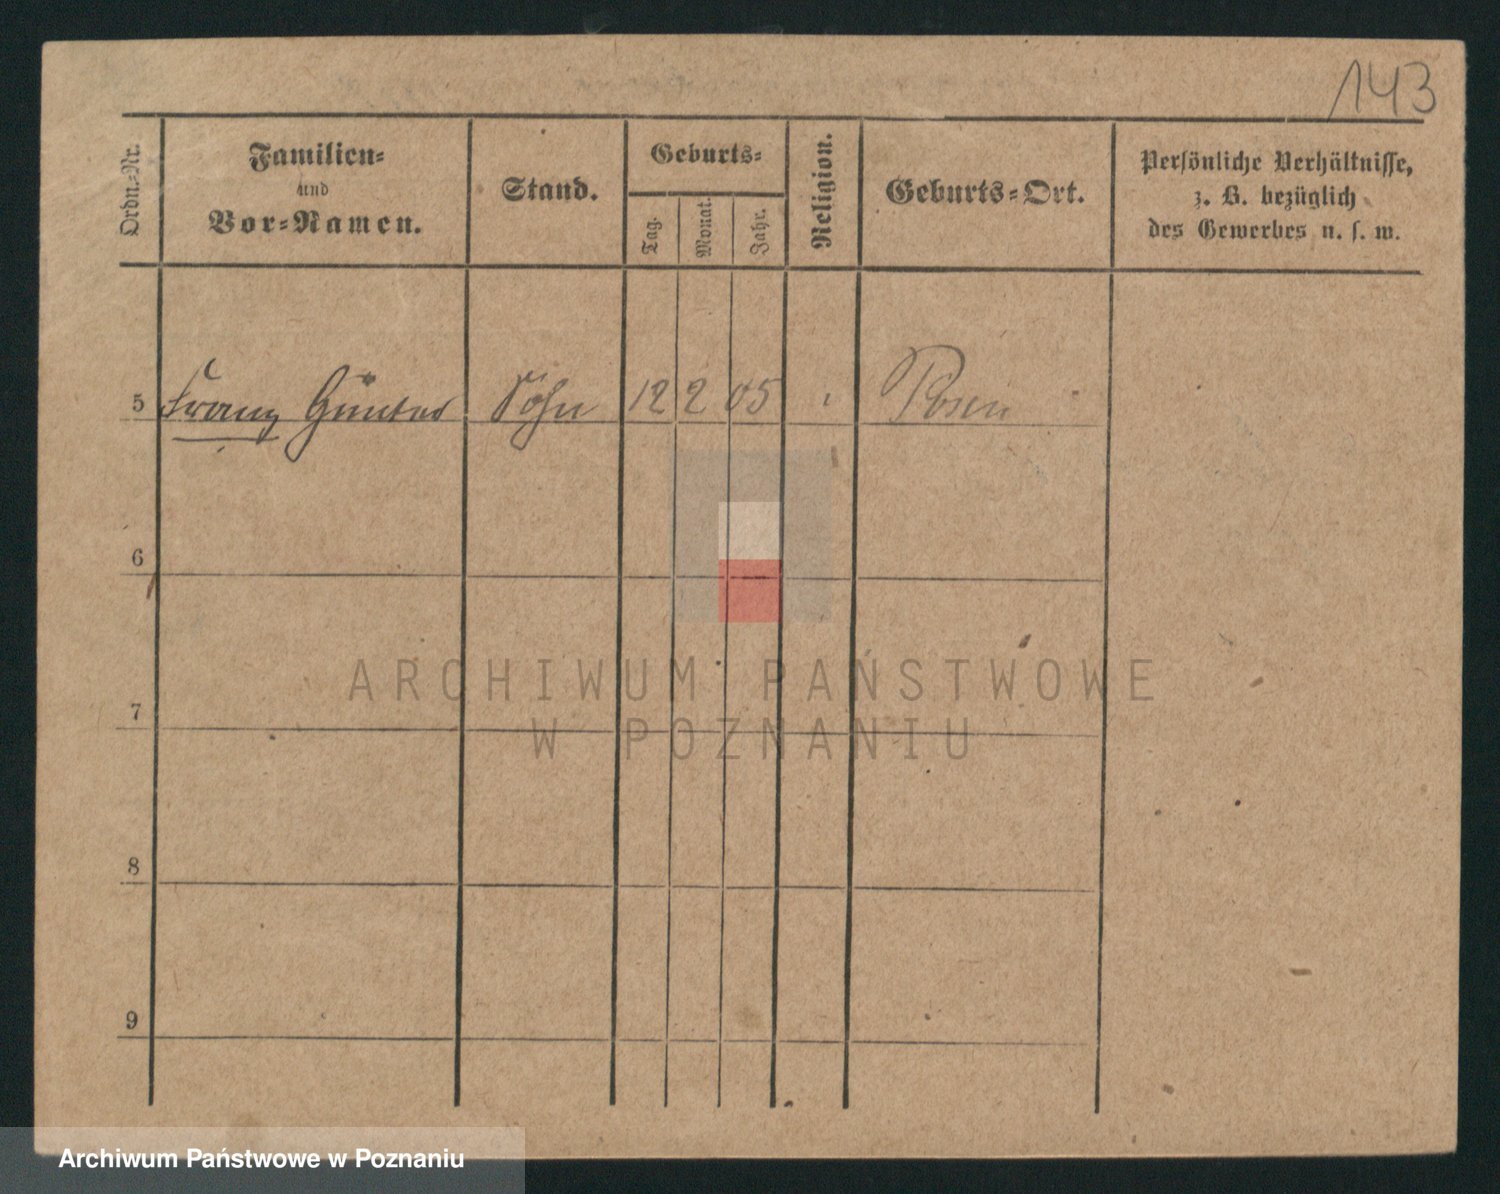 143
Ordn.-Nr.
Familien-
und
Vor-Namen.
Stand.
Geburts-
Tag.
Monat.
Jahr.
Religion.
Geburts-Ort.
Persönliche Verhältnisse,
z. B. bezüglich
des Gewerbes u. s. w.
5 Franz Günter Sohn 12 2 05 Posen
6
7
8
9
ARCHIWUM PAŃSTWOWE
W POZNANIU
Archiwum Państwowe w Poznaniu